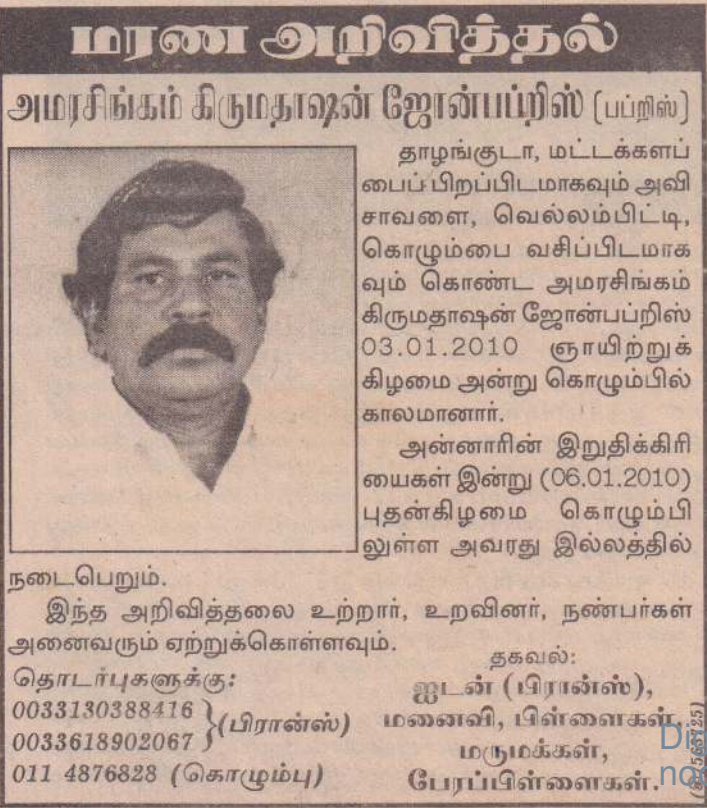 மரண அறிவித்தல்
அமரசிங்கம் கிருமதாஷன் ஜோன்பப்றிஸ் (பப்றிஸ்)
தாழங்குடா, மட்டக்களப்
பைப் பிறப்பிடமாகவும் அவி
சாவளை, வெல்லம்பிட்டி,
கொழும்பை வசிப்பிடமாக
வும் கொண்ட அமரசிங்கம்
கிருமதாஷன் ஜோன்பப்றிஸ்
03.01.2010 ஞாயிற்றுக்
கிழமை அன்று கொழும்பில்
காலமானார்.
அன்னாரின் இறுதிக்கிரி
யைகள் இன்று (06.01.2010)
புதன்கிழமை கொழும்பி
லுள்ள அவரது இல்லத்தில்
நடைபெறும்.
இந்த அறிவித்தலை உற்றார், உறவினர், நண்பர்கள்
அனைவரும் ஏற்றுக்கொள்ளவும்.
தொடர்புகளுக்கு:
0033130388416
0033618902067 } (பிரான்ஸ்)
011 4876828 (கொழும்பு)
தகவல்:
ஐடன் (பிரான்ஸ்),
மனைவி, பிள்ளைகள்,
மருமக்கள்,
பேரப்பிள்ளைகள்.